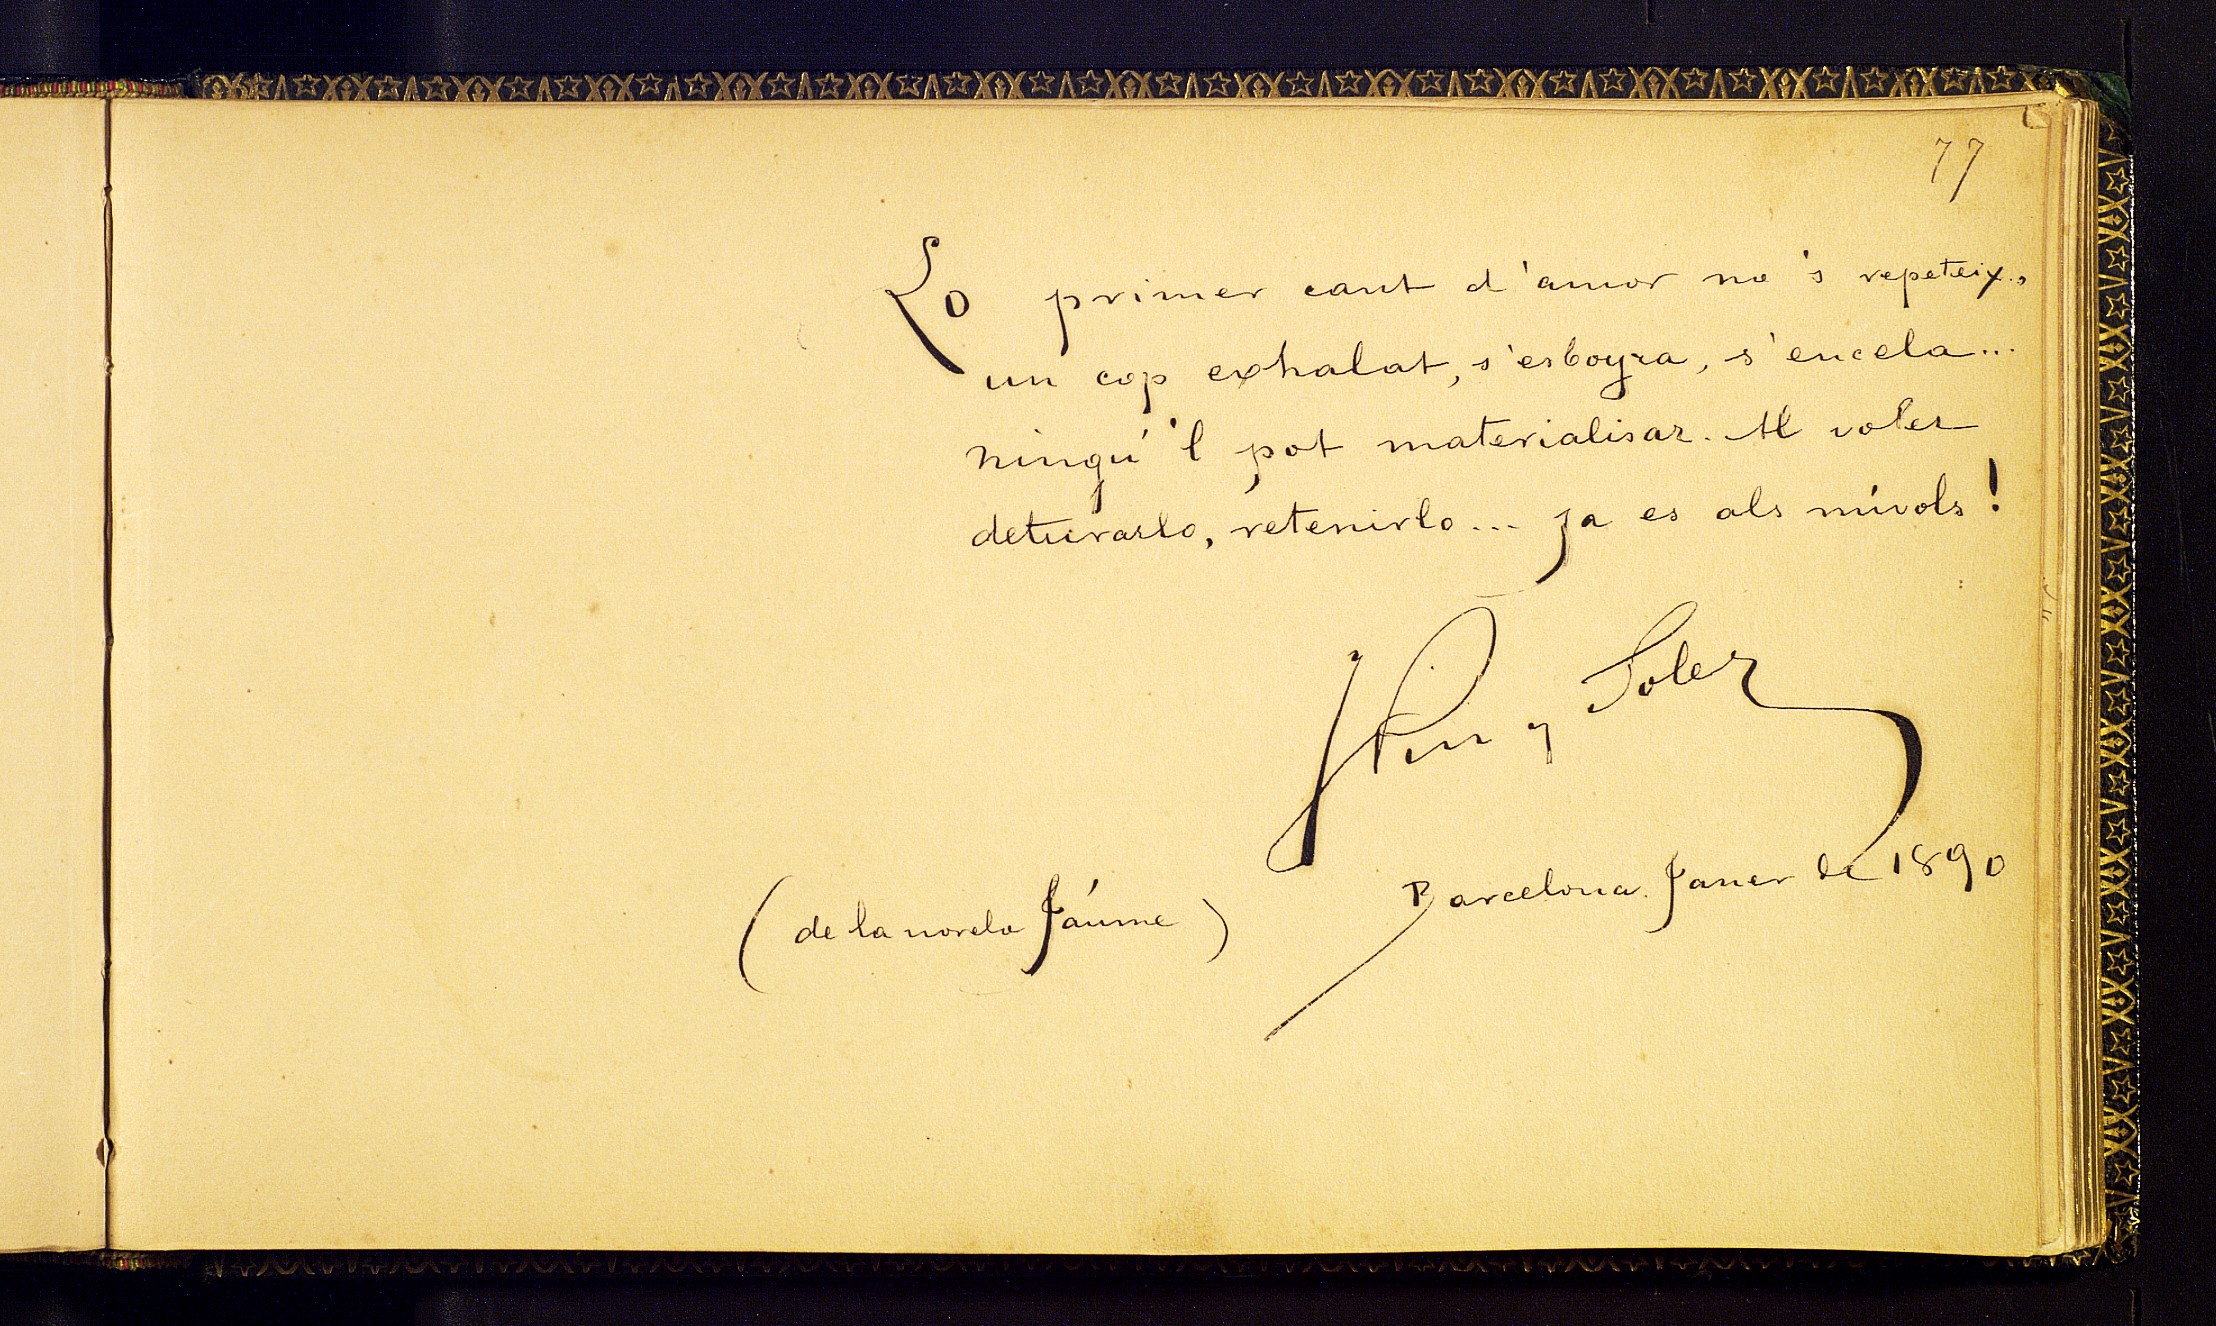 77
Lo primer cant d'amor no 's repeteix.,
un cop exhalat, s'esboyra, s'encela...
ningú 'l pot materialisar. Al voler
deturarlo, retenirlo... ja es als núvols!
J Pin y Soler
Barcelona. Janer de 1890
(de la novela Jáume)